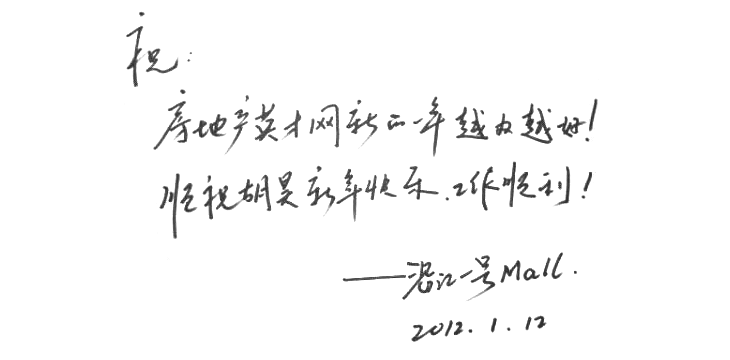 祝:
房地产英才网新的一年越办越好!
顺祝胡昊新年快乐、工作顺利!
——沿江一号Mall.
2012.1.12